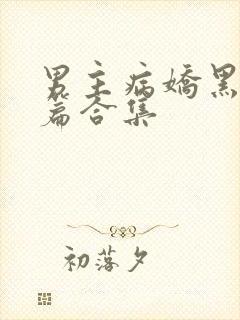 男主病嬌黑
篇合集
初落夕